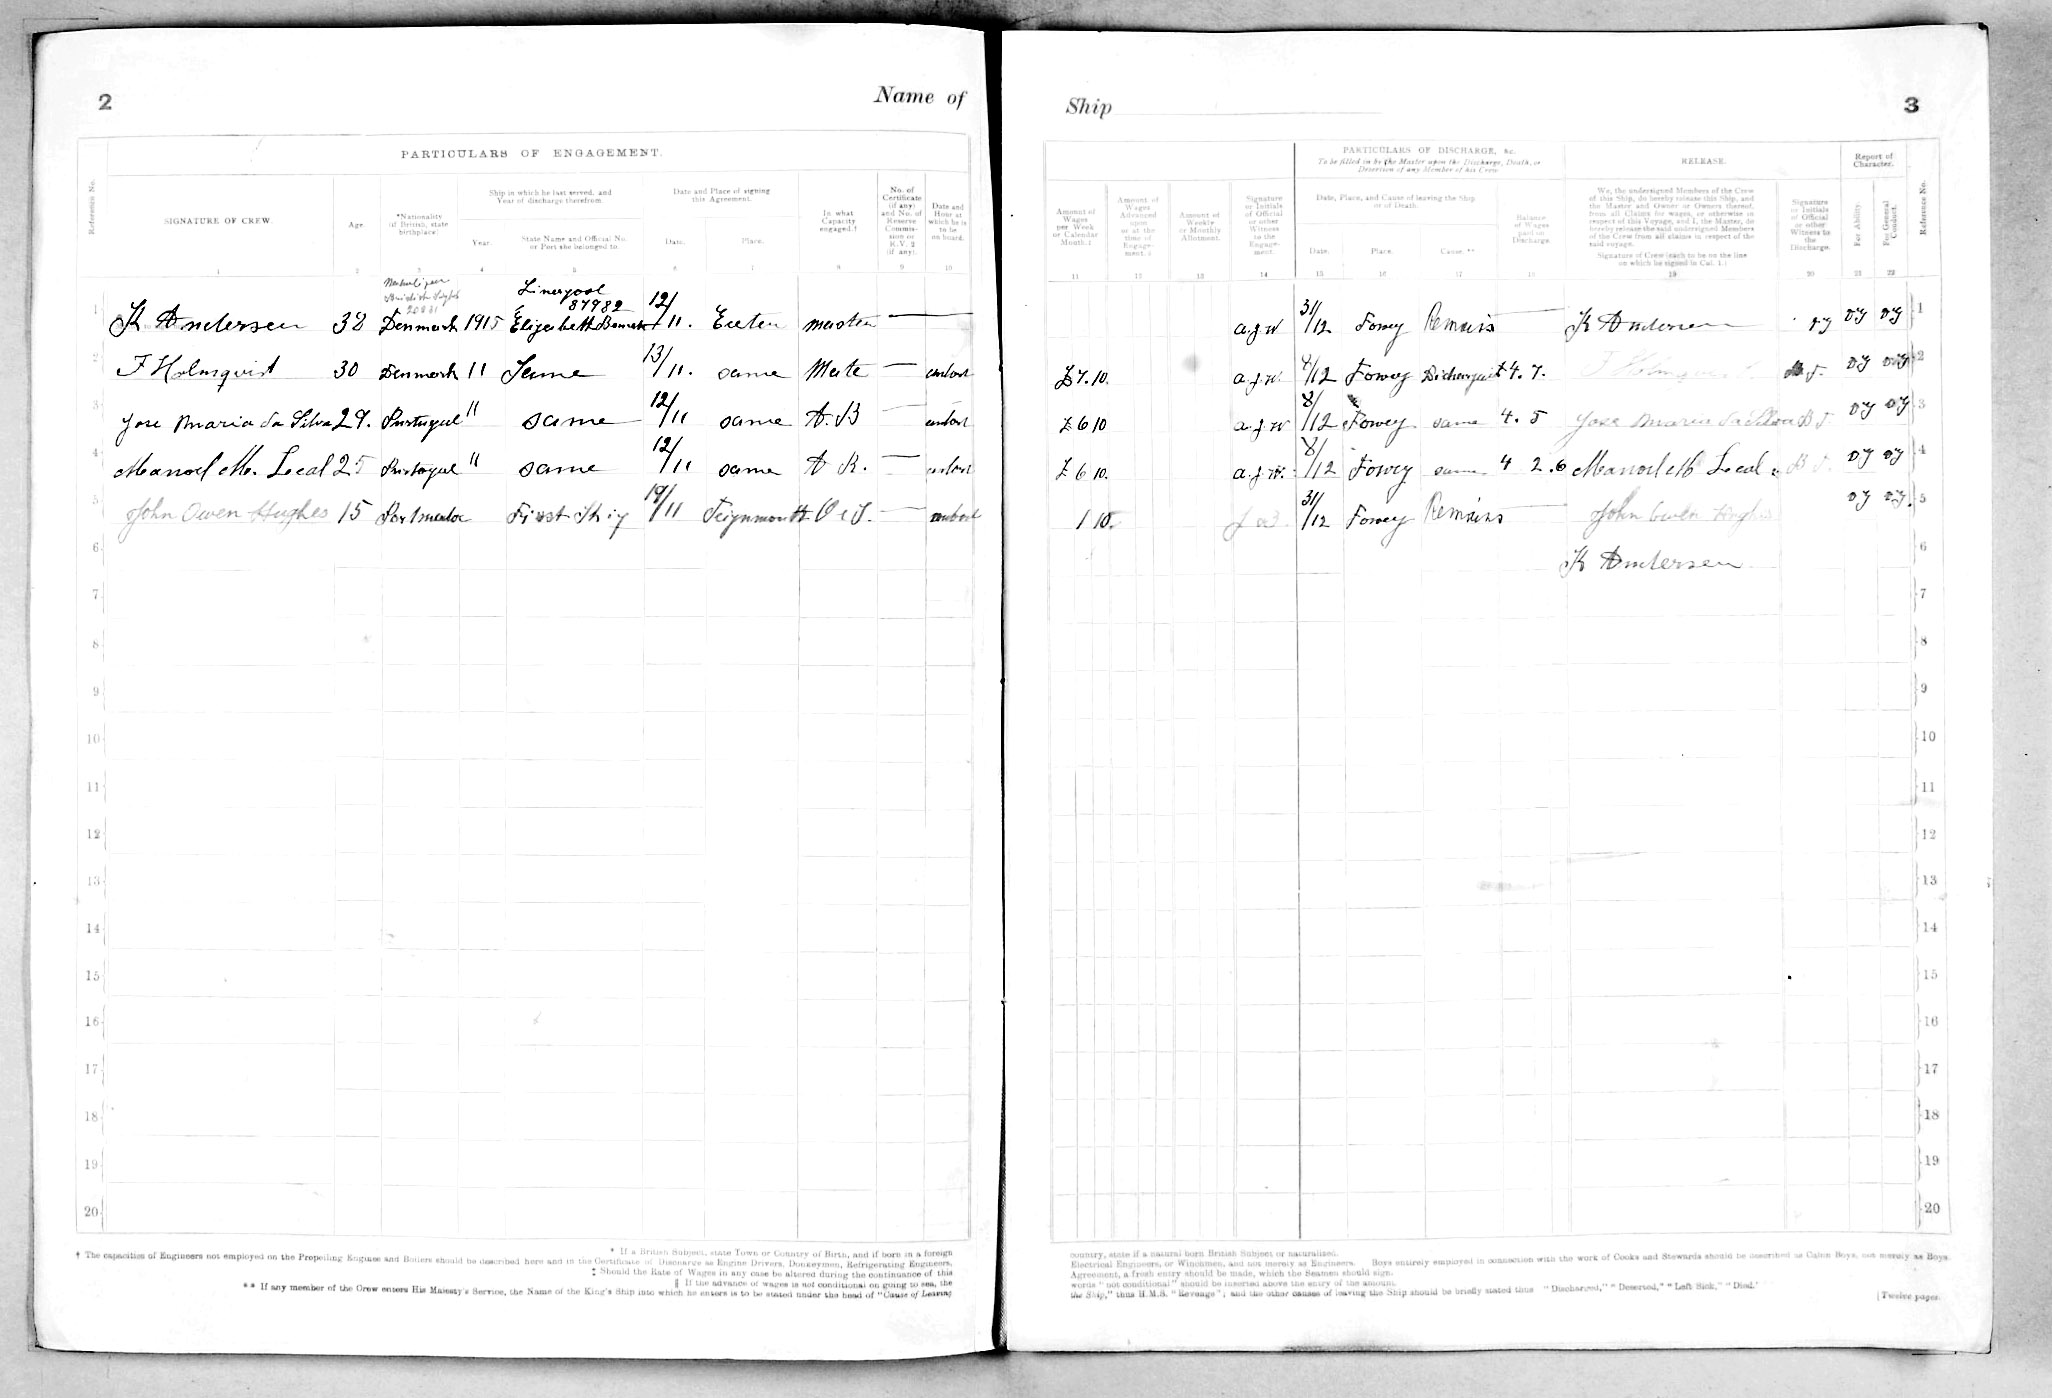 2
Name of
PARTICULARS OF ENGAGEMENT.
Reference No.
SIGNATURE OF CREW.
Age.
*Nationality (if British, state birthplace)
Ship in which he last served, and Year of discharge therefrom.
Year.
State Name and Official No. or Port she belonged to.
Date and Place of signing this Agreement.
Date.
Place.
In what Capacity engaged.†
No. of Certificate (if any) and No. of Reserve Commission or R.V. 2 (if any).
Date and Hour at which he is to be on board.
1 2 3 4 5 6 7 8 9 10
Liverpool
87982
1 K Andersen 38 Denmark 1915 Elizabeth 12/11. Exeter master —
2 F Holmqvist 30 Denmark 11 Same 13/11. same Mate — onbort
3 Jose Maria da Silva 29. Portugal " same 12/11 same A.B — onbort
4 Manoel M. Leal 25 Portugal " same 12/11 same A B. — onbort
5 John Owen Hughes 15 Portmadoc First Ship 19/11 Teignmouth O.S. — onbort
6
7
8
9
10
11
12
13
14
15
16
17
18
19
20
* If a British Subject, state Town or Country of Birth, and if born in a foreign
† The capacities of Engineers not employed on the Propelling Engines and Boilers should be described here and in the Certificate of Discharge as Engine Drivers, Donkeymen, Refrigerating Engineers,
‡ Should the Rate of Wages in any case be altered during the continuance of this
§ If the advance of wages is not conditional on going to sea, the
** If any member of the Crew enters His Majesty's Service, the Name of the King's Ship into which he enters is to be stated under the head of "Cause of Leaving
Ship
3
PARTICULARS OF DISCHARGE, &c.
To be filled in by the Master upon the Discharge, Death, or Desertion of any Member of his Crew
RELEASE.
Report of Character.
Amount of Wages per Week or Calendar Month.‡
Amount of Wages Advanced upon or at the time of Engagement.§
Amount of Weekly or Monthly Allotment.
Signature or Initials of Official or other Witness to the Engagement.
Date, Place, and Cause of leaving the Ship or of Death.
Date.
Place.
Cause.**
Balance of Wages paid on Discharge.
We, the undersigned Members of the Crew of this Ship, do hereby release this Ship, and the Master and Owner or Owners thereof, from all Claims for wages, or otherwise in respect of this Voyage, and I, the Master, do hereby release the said undersigned Members of the Crew from all claims in respect of the said voyage.
Signature of Crew (each to be on the line on which he signed in Col. 1.)
Signature or Initials of Official or other Witness to the Discharge.
For Ability.
For General Conduct.
Reference No.
11 12 13 14 15 16 17 18 19 20 21 22
a.j.w 31/12 Fowey Remains — K Andersen VG VG 1
£7.10. a.j.w. 8/12 Fowey 4.7. F Holmqvist VG VG 2
£6 10 a.j.w 8/12 Fowey same 4.5 Jose Maria da Silva VG VG 3
£6 10. a.j.w. 8/12 Fowey same 4 2.6 Manoel M Leal VG VG 4
1 10. 31/12 Fowey Remains John Owen Hughes VG VG 5
K Andersen 6
7
8
9
10
11
12
13
14
15
16
17
18
19
20
country, state if a natural born British Subject or naturalised.
Electrical Engineers, or Winchmen, and not merely as Engineers. Boys entirely employed in connection with the work of Cooks and Stewards should be described as Cabin Boys, not merely as Boys.
Agreement, a fresh entry should be made, which the Seamen should sign.
words "not conditional" should be inserted above the entry of the amount.
the Ship," thus H.M.S. "Revenge"; and the other causes of leaving the Ship should be briefly stated thus "Discharged," "Deserted," "Left Sick," "Died."
[Twelve pages.